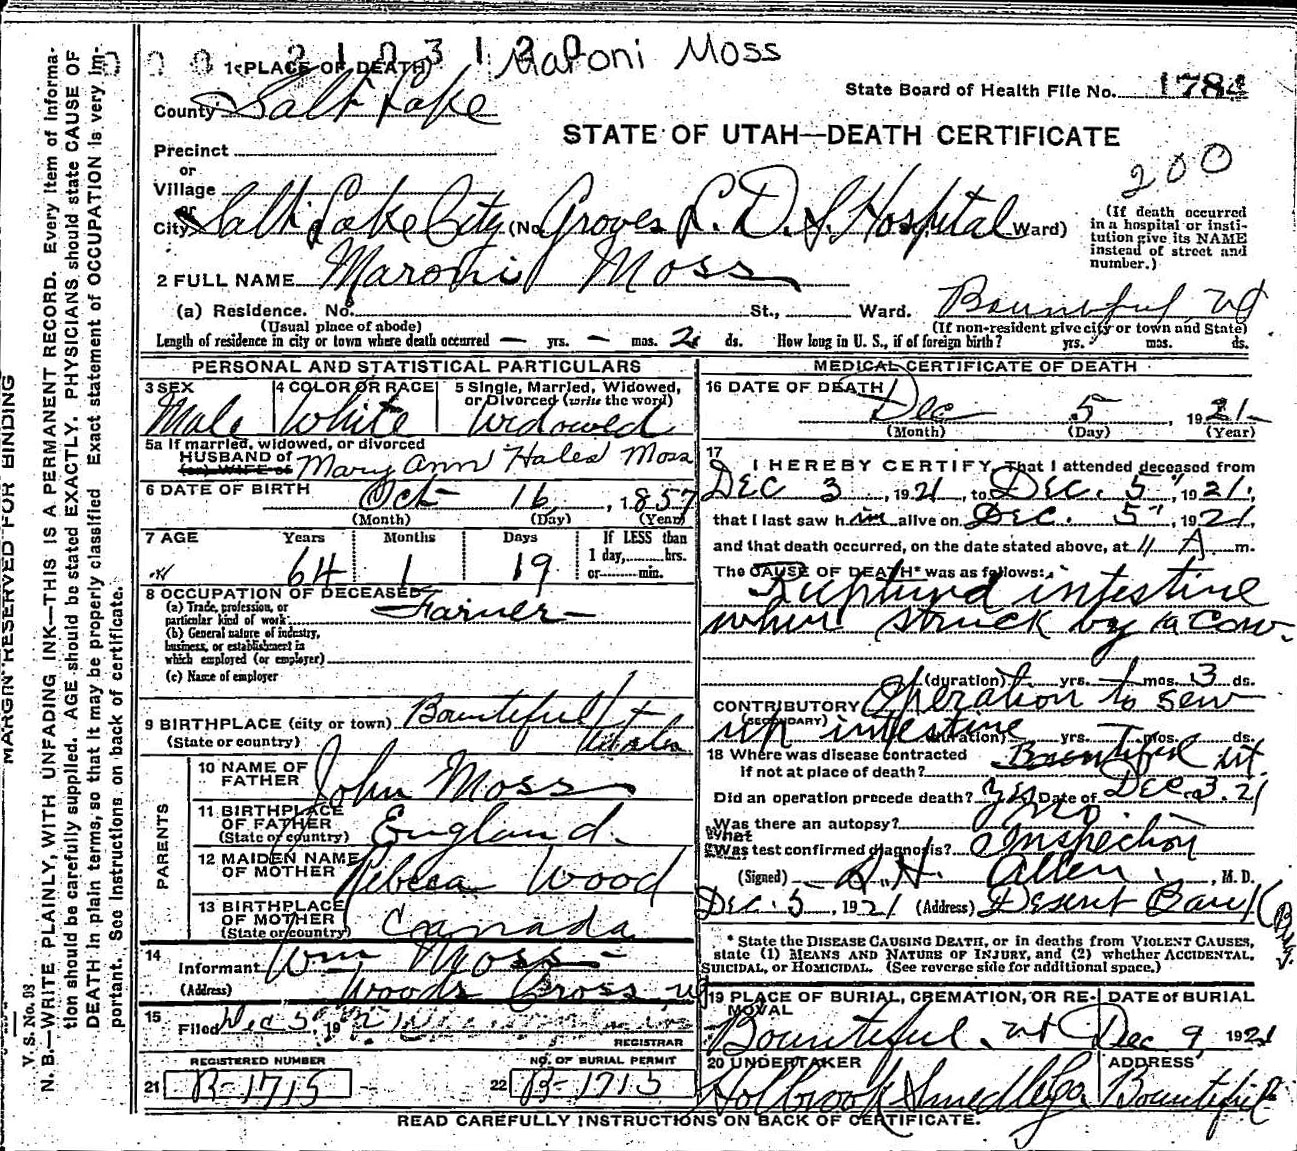 Maroni Moss
1 PLACE OF DEATH
State Board of Health File No. 1784
County Salt Lake
STATE OF UTAH—DEATH CERTIFICATE
Precinct
or
200
Village
or
City Salt Lake City (No. Groves L. D. S. Hospital Ward)
(If death occurred in a hospital or insti-
tution give its NAME instead of street and number.)
2 FULL NAME Maroni Moss
(a) Residence. No. St., Ward. Bountiful, Ut
(Usual place of abode)
(If non-resident give city or town and State)
Length of residence in city or town where death occurred — yrs. — mos. 2 ds. How long in U. S., if of foreign birth? yrs. mos. ds.
PERSONAL AND STATISTICAL PARTICULARS
3 SEX
Male
4 COLOR OR RACE
White
5 Single, Married, Widowed, or Divorced (write the word)
Widowed
5a If married, widowed, or divorced
HUSBAND of
(or) WIFE of
Mary Ann Hales Moss
6 DATE OF BIRTH Oct 16, 1857
(Month) (Day) (Year)
7 AGE Years Months Days If LESS than
1 day, hrs.
or min.
64 1 19
8 OCCUPATION OF DECEASED
(a) Trade, profession, or
particular kind of work Farmer
(b) General nature of industry,
business, or establishment in
which employed (or employer)
(c) Name of employer
9 BIRTHPLACE (city or town) Bountiful Ut
(State or country)
PARENTS
10 NAME OF FATHER John Moss
11 BIRTHPLACE OF FATHER
(State or country) England.
12 MAIDEN NAME OF MOTHER Rebeca Wood
13 BIRTHPLACE OF MOTHER
(State or country) Canada
14
Informant Wm Moss
(Address) Woods Cross Ut
15
Filed Dec 5, 19
REGISTRAR
REGISTERED NUMBER
21 B-1715
NO. OF BURIAL PERMIT
22 B-1715
MEDICAL CERTIFICATE OF DEATH
16 DATE OF DEATH
Dec 5, 1921
(Month) (Day) (Year)
17
I HEREBY CERTIFY, That I attended deceased from
Dec 3, 1921, to Dec. 5", 1921,
that I last saw him alive on Dec. 5", 1921,
and that death occurred, on the date stated above, at 11 A. m.
The CAUSE OF DEATH* was as follows:
Ruptured intestine
when struck by a cow.
(duration) yrs. mos. 3 ds.
CONTRIBUTORY Operation to sew
(SECONDARY)
up intestine
(duration) yrs. mos. ds.
18 Where was disease contracted
if not at place of death? Bountiful Ut.
Did an operation precede death? Yes Date of Dec. 3. 21
Was there an autopsy? No.
What
Was test confirmed diagnosis? Inspection
(Signed) R. H. Allen, M. D.
Dec. 5, 1921 (Address) Deseret Bank Bldg.
* State the DISEASE CAUSING DEATH, or in deaths from VIOLENT CAUSES,
state (1) MEANS AND NATURE OF INJURY, and (2) whether ACCIDENTAL,
SUICIDAL, or HOMICIDAL. (See reverse side for additional space.)
19 PLACE OF BURIAL, CREMATION, OR RE-
MOVAL
Bountiful, Ut
DATE of BURIAL
Dec 9 1921
20 UNDERTAKER
Holbrook Smedley Co.
ADDRESS
Bountiful
READ CAREFULLY INSTRUCTIONS ON BACK OF CERTIFICATE.
MARGIN RESERVED FOR BINDING
V. S. No. 98
N. B.—WRITE PLAINLY, WITH UNFADING INK—THIS IS A PERMANENT RECORD. Every item of informa-
tion should be carefully supplied. AGE should be stated EXACTLY. PHYSICIANS should state CAUSE OF
DEATH in plain terms, so that it may be properly classified. Exact statement of OCCUPATION is very im-
portant. See instructions on back of certificate.